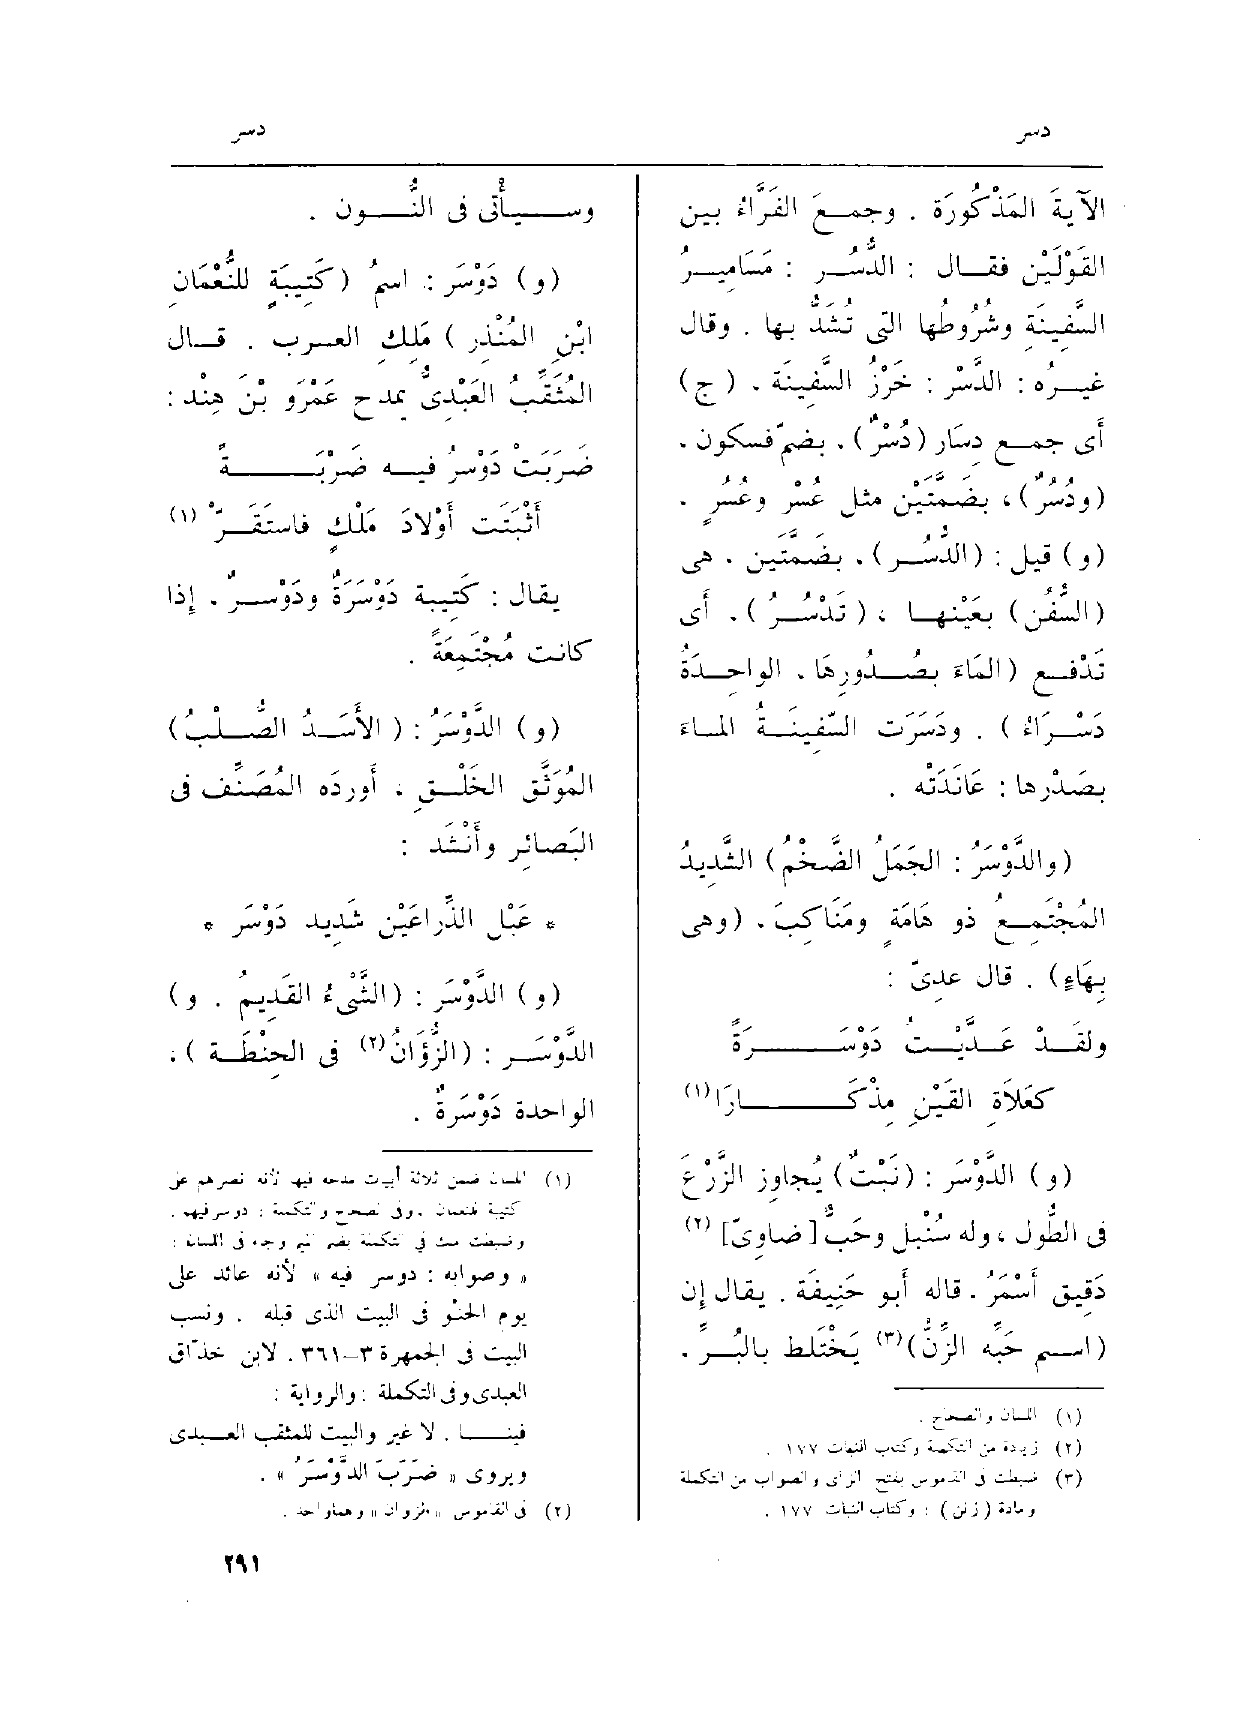 دسر
دسر
الآيةَ المَذْكُورَة . وجمـعَ الفَرَّاءُ بين
القَوْلَيْن فقـال : الدُّسُـر : مَسَامِيـرُ
السَّفِينَة وشُرُوطها التى تُشَدُّ بها . وقال
غيـرُه : الدَّسْر : خَرْزُ السَّفِينَة . ( ج )
أى جمـع دِسَار (دُسْرٌ) ، بضمّ فسكون .
(ودُسُرٌ) ، بضَمَّتَيْن مثل عُسْر وعُسُرٍ .
(و) قيل : (الدُّسُـر) ، بضَمَّتَين . هى
(السُّفُن) بعَيْنِهـا ، (تَدْسُـرُ) . أى
تَدْفـع (المَاءَ بصُـدُورِهَا . الواحِـدَةُ
دَسْـرَاءُ ) . ودَسَرَت السَّفِينَـةُ المـاءَ
بصَدْرِها : عَانَدَتْه .
(والدَّوْسَرُ : الجَمَلُ الضَّخْمُ) الشَّدِيدُ
المُجْتَمِـعُ ذو هَامَةٍ ومَنَاكِبَ . (وهى
بِهَاءٍ) . قال عدِىّ :
ولقـدْ عَـدَّيْـتُ دَوْسَـــرَةً
كعَلاَةِ القَيْنِ مِذْكَـــارَا(١)
(و) الدَّوْسَر : (نَبْتٌ) يُجاوِز الزَّرْعَ
فى الطُّول ، وله سُنْبل وحَبٌّ [ضاوِىّ] (٢)
دَقِيق أَسْمَرُ . قاله أبو حَنِيفَة . يقال إن
(اسـم حَبّه الزِّنُّ)(٣) يَخْتَلط بالبُـرّ .
(١) اللسان والصحاح .
(٢) زيادة من التكملة وكتاب النبات ١٧٧ .
(٣) ضبطت فى القاموس بفتح الزاى والصواب من التكملة
ومادة (زنن) : وكتاب النبات ١٧٧ .
وســيأْتى فى النُّــون .
(و) دَوْسَر : اسمُ (كَتِيبَةٍ للنُّعْمَانِ
ابْنِ المُنْذِر ) مَلِكِ العـرب . قـال
المُثَقِّبُ العَبْدِىُّ يمدح عَمْرَو بْنَ هِنْد :
ضَرَبَتْ دَوْسَرُ فيـه ضَرْبَـــةً
أَثْبَتَت أَوْتَادَ مُلْكٍ فاستَقَـرّْ (١)
يقال : كَتيبة دَوْسَرَةٌ ودَوْسَـرٌ . إذا
كانت مُجْتَمِعَةً .
(و) الدَّوْسَرُ : ( الأَسَـدُ الصُّـلْبُ)
المُوَثَّق الخَلْـقِ ، أَورَده المُصَنِّف فى
البَصائِر وأَنْشَد :
* عَبْل الذِّراعَيْن شَدِيد دَوْسَر *
(و) الدَّوْسَر : (الشَّىْءُ القَدِيمُ . و)
الدَّوْسَـر : (الزُّؤَانُ(٢) فى الحِنْطَـة ) ،
الواحدة دَوْسَرَةٌ .
(١) اللسان ضمن ثلاثة أبيات مدحه فيها لأنه نصرهم على
كتيبة النعمان . وفى الصحاح والتكملة : دوسر فيهم .
وضبطت ملك فى التكملة بضم الميم وجاء فى اللسان :
« وصوابه : دوسر فيه » لأنه عائد على
يوم الحنْو فى البيت الذى قبله . ونسب
البيت فى الجمهرة ٣–٣٦١ . لابن خذَّاق
العبدى وفى التكملة : والرواية :
فينــا . لا غير والبيت للمثقب العبـدى
ويروى « ضَرَبَ الدَّوْسَرُ » .
(٢) فى القاموس « الزوان » وهما واحد .
٢٩١